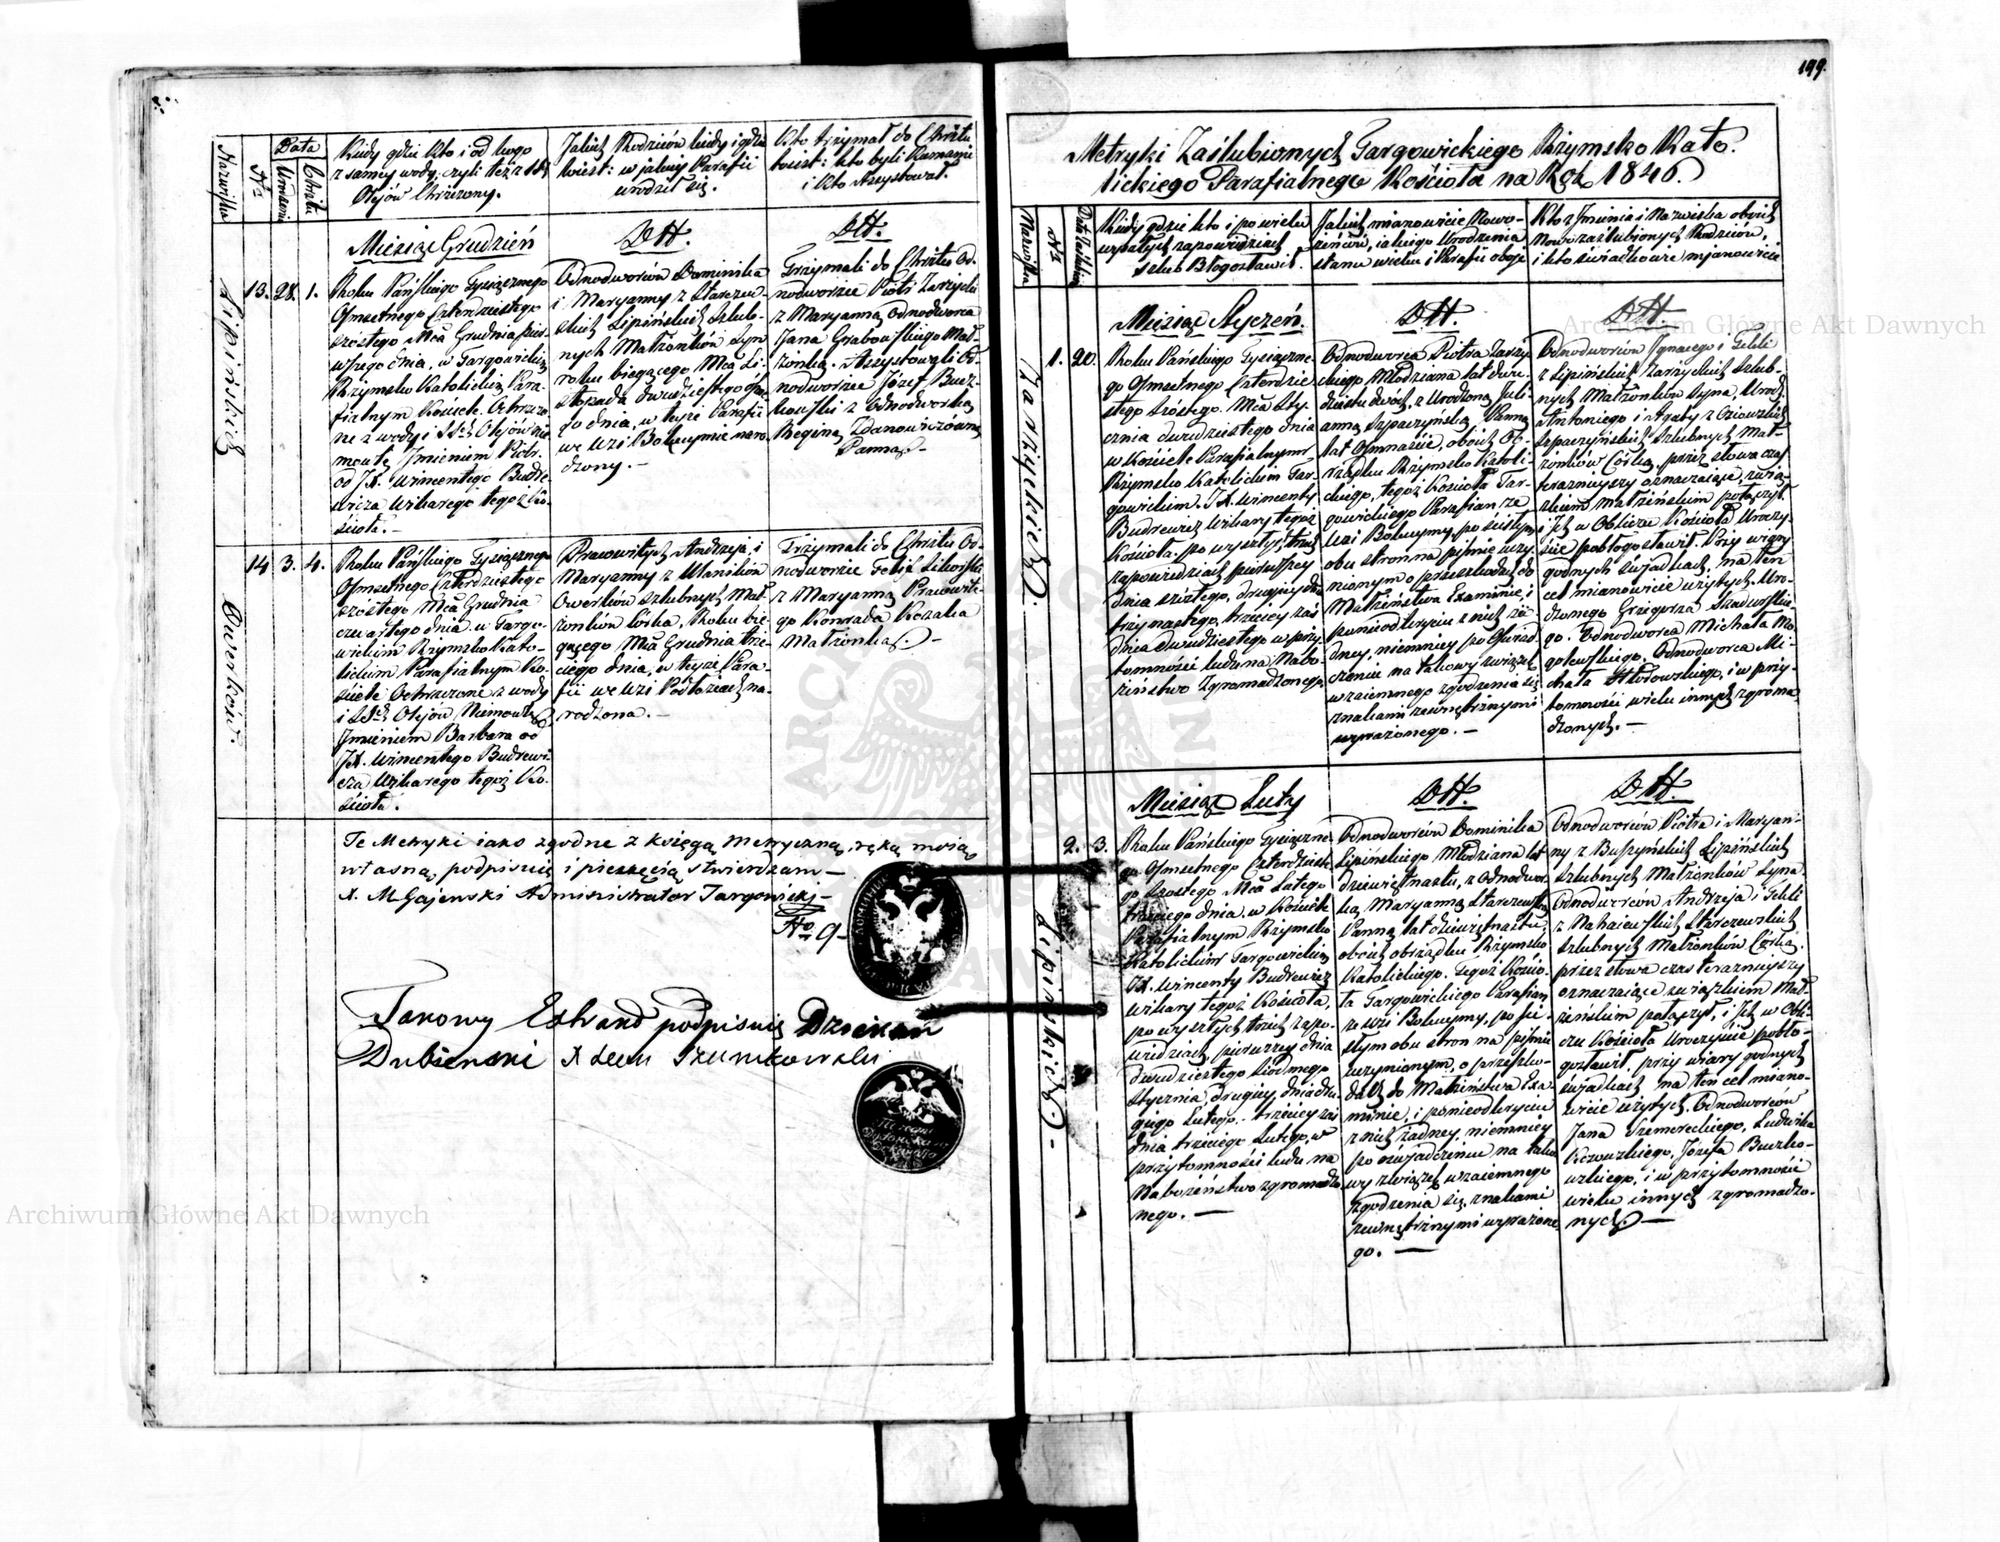 199.
Nazwiska
Nr
Data
Urodzenia
Chrztu
Kiedy gdzie kto i od kogo
z samey wody, czyli też z SS
Olejów Chrzczony.
Jakich Rodziców kiedy i gdzie
w jakiey Parafii
urodził się.
Kto trzymał do Chrztu
kto byli Kumami
i kto Assystował.
Miesiąc Grudzień
Lipińskich
13. 28. 1.
Roku Pańskiego Tysiącznego
Ośmsetnego Czterdziestego
szóstego Mca Grudnia pier-
wszego dnia, w Targowickim
Rzymsko Katolickim Para-
fialnym Kościele Ochrzczo-
ne z wody i SSch Olejów nie-
mowlę Imieniem Piotr.
od JX. Wincentego Budre-
wicza Wikarego tegoż Ko-
ścioła.-
Odnodworców Dominika
i Maryanny z Starczew-
skich Lipińskich szlub-
nych Małżonków syn
roku biegącego Mca Li-
stopada dwudziestego ósme-
go dnia, w teyże Parafii
we wsi Boluymie naro-
dzony.-
Trzymali do Chrztu Od-
nodworzec Piotr Zarzycki
z Maryanną Odnodworca
Jana Grabowskiego Mał-
żonką. Assystowali Od-
nodworzec Józef Bucz-
kowski z Odnodworką
Reginą Zdanowiczówną
Panną.-
Owerków.
14 3. 4.
Roku Pańskiego Tysiącznego
Ośmsetnego Czterdziestego
szóstego Mca Grudnia
czwartego dnia w Targo-
wickim Rzymsko Kato-
lickim Parafialnym Ko-
ściele Ochrzczone z wody
i SSch Olejów Niemowlę
Imieniem Barbara od
JX. Wincentego Budrewi-
cza Wikarego tegoż Ko-
ścioła.
Pracowitych Andrzeja i
Maryanny z Ulaników
Owerków szlubnych Mał-
żonków córka, Roku bie-
gącego Mca Grudnia trze-
ciego dnia, w teyże Para-
fii we wsi Podłoziach na-
rodzona.-
Trzymali do Chrztu Od-
nodworzec Felix
z Maryanną Pracowite-
go Konrada Kozaka
Małżonką.-
Te Metryki iako zgodne z księgą metryczną, ręką moią
własną podpisuię i pieczęcią stwierdzam-
X. M Gajewski Administrator Targowicki-
No 9-
podpisuię Dziekan
Dubieński X
Metryki Zaślubionych Targowickiego Rzymsko Kato-
lickiego Parafialnego Kościoła na Rok 1846.
Nazwiska
Nr
Kiedy gdzie kto i po wielu
wyszłych zapowiedziach
szlub Błogosławił.
Jakich mianowicie Nowo-
żeńców, iakiego Urodzenia
stanu wieku i Parafii oboje
Kto z Imienia i Nazwiska obóich
Nowozaślubionych Rodziców,
i kto świadkowie mianowicie
Miesiąc Styczeń.
Zarzyckich.
1. 20.
Roku Pańskiego Tysiączne-
go Ośmsetnego Czterdzie-
stego szóstego. Mca Sty-
cznia dwudziestego dnia
w Kościele Parafialnym
Rzymsko Katolickim Tar-
gowickim. JX. Wincenty
Budrewicz Wikary tegoż
Kościoła. po wyszłych trzech
zapowiedziach pierwszey
dnia szóstego, drugiey dnia
trzynastego, trzeciey zaś
dnia dwudziestego w przy-
tomności ludu na Nabo-
żeństwo zgromadzonego
Odnodworca Piotra Zarzy-
ckiego Młodziana lat dwu-
dziestu dwóch, z Urodzoną Juli-
anną Szpaczyńską Panną
lat Ośmnaście, obóich Ob-
rządku Rzymsko Katoli-
ckiego, tegoż Kościoła Tar-
gowickiego Parafian ze
wsi Boluymy, po ścisłym
obu stron na piśmie uczy-
nionym o przeszkodach do
Małżeństwa Examinie, i
po nieodkryciu z nich ża-
dney, niemniey po Oświad-
czeniu na takowy związek
wzaiemnego zgodzenia się
znakami zewnętrznymi
wyrażonego.-
Odnodworców Ignacego i Tekli
z Lipińskich Zarzyckich szlub-
nych Małżonków syna, Urodz.
Antoniego i Agaty z
Szpaczyńskich szlubnych Mał-
żonków Córką, przez słowa czas
teraznieyszy oznaczaiące, zwią-
zkiem Małżeńskim połączył.
i Ich w Obliczu Kościoła Uroczy-
ście pobłogosławił. Przy wiary
godnych świadkach, na ten
cel mianowicie użytych, Uro-
dzonego Grzegorza
go. Odnodworca Michała Mo-
golewskiego, Odnodworca Mi-
chała Kłodowskiego, i w przy-
tomności wielu innych zgroma-
dzonych.-
Miesiąc Luty
Lipińskich.-
2. 3.
Roku Pańskiego Tysiączne-
go Ośmsetnego Czterdzieste-
go szóstego Mca Lutego
trzeciego dnia w Kościele
Parafialnym Rzymsko
Katolickim Targowickim
JX. Wincenty Budrewicz
Wikary tegoż Kościoła,
po wyszłych trzech zapo-
wiedziach, pierwszey dnia
dwudziestego siódmego
Stycznia, drugiey dnia dru-
giego Lutego, trzeciey zaś
dnia trzeciego Lutego, w
przytomności ludu na
Nabożeństwo zgromadzo-
nego.-
Odnodworców Dominika
Lipińskiego Młodziana lat
dziewiętnastu, z Odnodwor-
ką Maryanną Starczewską
Panną lat dziewiętnastu,
obóich obrządku Rzymsko
Katolickiego. Tegoż Kościo-
ła Targowickiego Parafian
ze wsi Boluymy, po ści-
słym obu stron na piśmie
uczynionym, o przeszko-
dach do Małżeństwa Exa-
minie, i po nieodkryciu
z nich żadney, niemniey
po oświadczeniu na tako-
wy związek wzaiemnego
zgodzenia się znakami
zewnętrznymi wyrażone-
go.-
Odnodworców Piotra i Maryan-
ny z Buszyńskich Lipińskich
szlubnych Małżonków syna.
Odnodworców Andrzeja i Tekli
z Starczewskich
szlubnych Małżonków Córką.
przez słowa czas teraznieyszy
oznaczaiące związkiem Mał-
żeńskim połączył, i Ich w Obli-
czu Kościoła Uroczyście pobło-
gosławił, przy wiary godnych
świadkach na ten cel miano-
wicie użytych, Odnodworców
Jana Szemereckiego, Ludwika
Józefa Buczko-
wskiego, i w przytomności
wielu innych zgromadzo-
nych.-
Archiwum Główne Akt Dawnych
Archiwum Główne Akt Dawnych